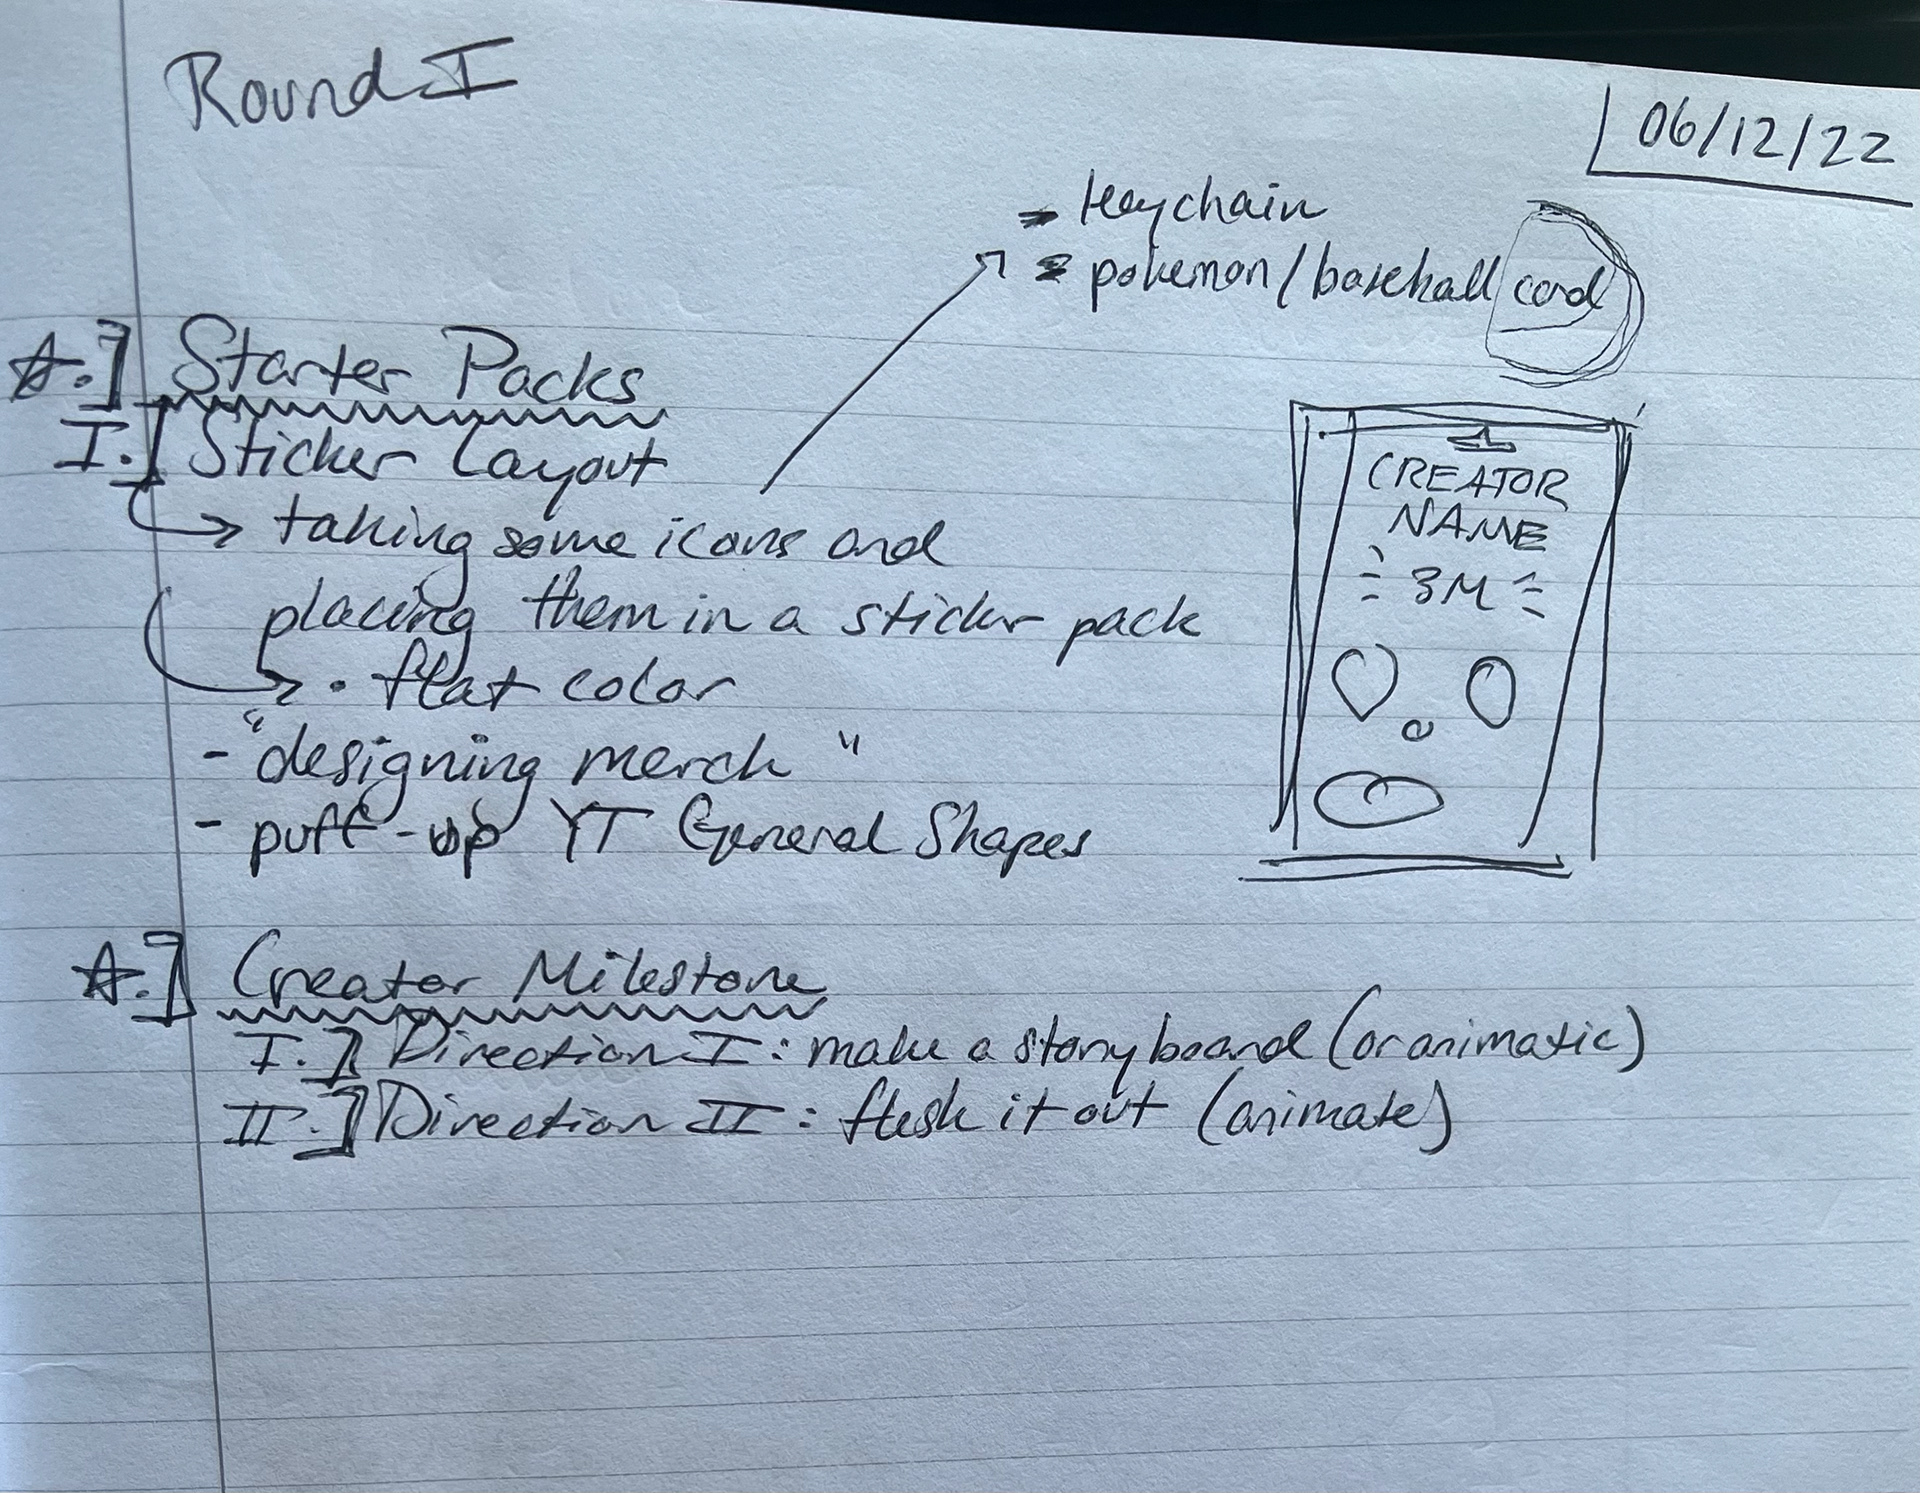 Round I
06/12/22
- Keychain
- pokemon/baseball card
☆.] Starter Packs
I.] Sticker Layout
→ taking some icons and
placing them in a sticker pack
→ • flat color
- "designing merch"
- puff-up YT General Shapes
CREATOR
NAME
3M
☆.] Creator Milestone
I.] Direction I: make a storyboard (or animatic)
II.] Direction II: flesh it out (animate)